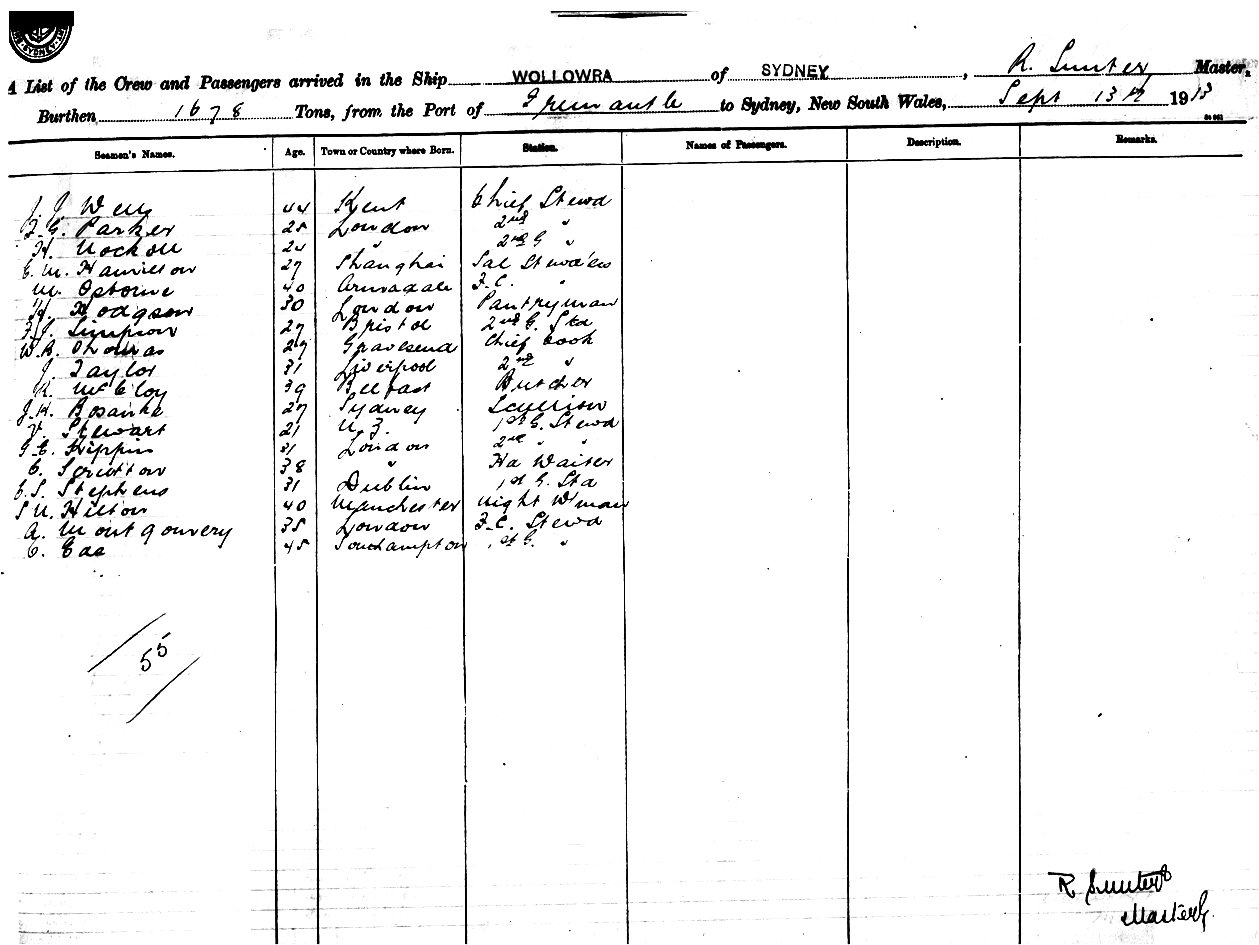 SYDNEY
A List of the Crew and Passengers arrived in the Ship WOLLOWRA of SYDNEY, R. Sunter Master,
Burthen 1678 Tons, from the Port of Fremantle to Sydney, New South Wales, Sept 13th 1913
Seamen's Names. Age. Town or Country where Born. Station. Names of Passengers. Description. Remarks.
J. J. Wells 44 Kent Chief Stewd
F. G. Parker 25 London 2nd "
H. 24 " 2nd G "
E. M. Hamilton 27 Shanghai Sal Stewd'ess
M. Osborne 40 Armadale F.C. "
H. Hodgson 30 London Pantryman
F. J. Simpson 27 Bristol 2nd G. Std
W. R. Thomas 27 Gravesend Chief Cook
J. Taylor 31 Liverpool 2nd "
R. McCloy 39 Belfast Butcher
J. H. 27 Sydney Scullion
Stewart 21 N.Z. 1st G. Stewd
G. E. Kippin 31 London 2nd " "
C. Scrutton 38 " Waiter
E. S. Stephens 31 Dublin 1st G. Std
Hilton 40 Manchester Night W'man
A. Montgomery 35 London F.C. Stewd
C. 45 Southampton 1st G. "
55
R Sunter
Master